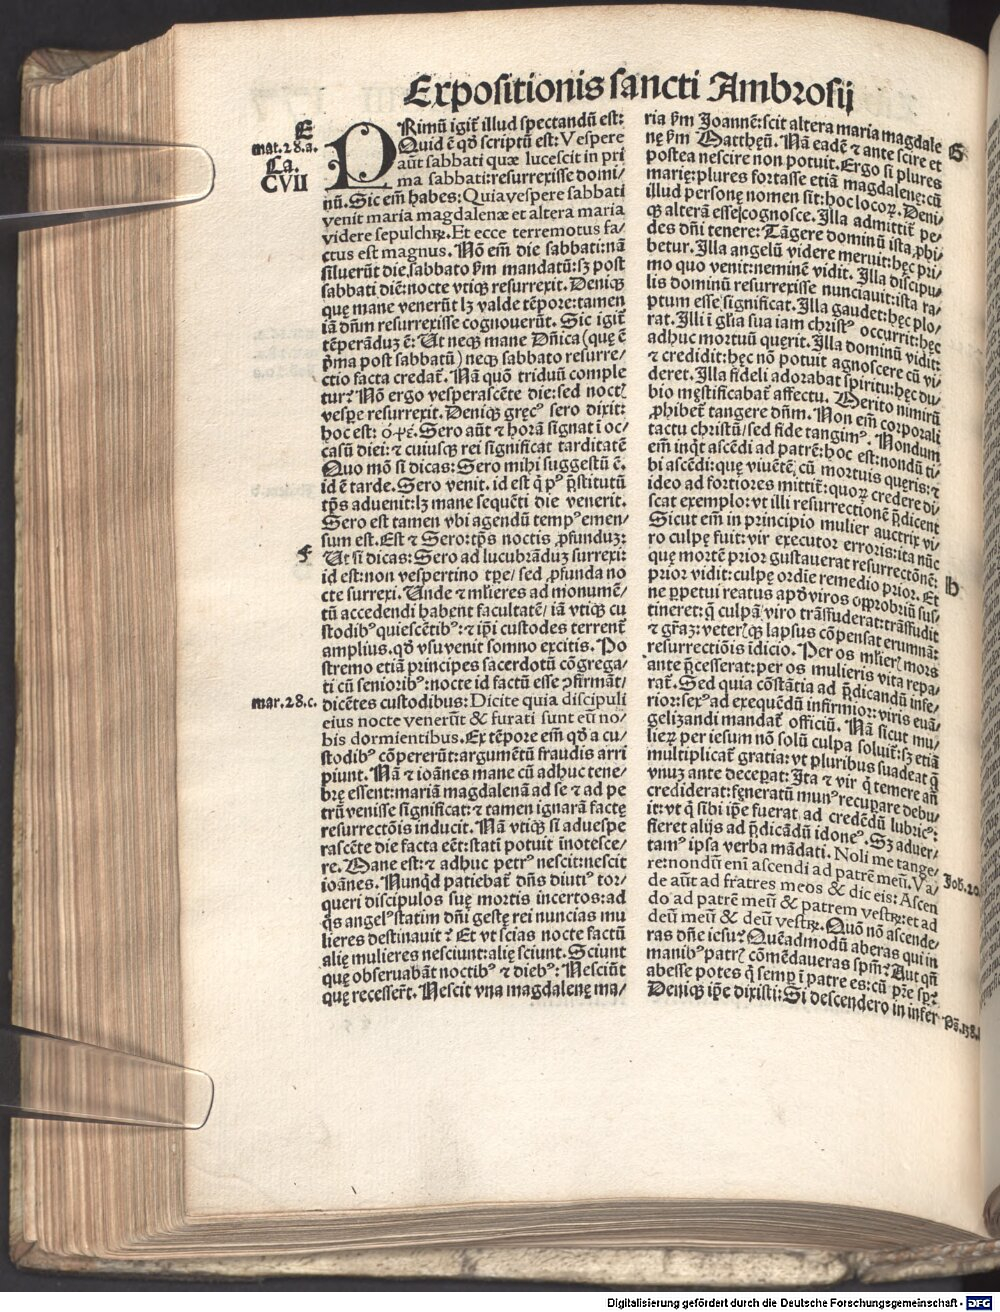 Expositionis sancti Ambrosij
E
mat.28.a.
Ca.
CVII
PRimū igit̄ illud spectandū est:
Quid ē qđ scriptū est: Vespere
aūt sabbati quæ lucescit in pri
ma sabbati: resurrexisse domi/
nū. Sic em̄ habes: Quia vespere sabbati
venit maria magdalenæ et altera maria
videre sepulchrꝝ. Et ecce terremotus fa/
ctus est magnus. Nō em̄ die sabbati: nā
siluerūt die sabbato ẜm mandatū: sꝫ post
sabbati diē: nocte vtiqꝫ resurrexit. Deniqꝫ
quę mane venerūt lꝫ valde tēpore: tamen
iā dn̄m resurrexisse cognouerūt. Sic igit̄
tēperāduꝫ ē: Ut neqꝫ mane Dn̄ica (quę ē
p̄ma post sabbatū) neqꝫ sabbato resurre/
ctio facta credat̄. Nā quō triduū comple
tur? Nō ergo vesperascēte die: sed noctꝭ
vespe resurrexit. Deniqꝫ gręcꝰ sero dixit:
hoc est: ὀψέ. Sero aūt & horā signat i oc/
casū diei: & cuiusqꝫ rei significat tarditatē
Quo mō si dicas: Sero mihi suggestū ē.
id ē tarde. Sero venit. id est q̄ pꝰ p̄stitutū
tp̄s aduenit: lꝫ mane sequēti die venerit.
Sero est tamen vbi agendū tempꝰ emen/
sum est. Est & Sero: tp̄s noctis ꝓfunduꝫ:
f
Ut si dicas: Sero ad lucubrāduꝫ surrexi:
id est: non vespertino tp̄e/ sed ꝓfunda no
cte surrexi. Unde & mlieres ad monumē/
tū accedendi habent facultatē/ iā vtiqꝫ cu
stodibꝰ quiescētibꝰ: & ip̄i custodes terrent̄
amplius. qđ vsu venit somno excitis. Po
stremo etiā principes sacerdotū cōgrega/
ti cū senioribꝰ: nocte id factū esse ↄfirmāt/
mar.28.c.
dicētes custodibus: Dicite quia discipuli
eius nocte venerūt & furati sunt eū no/
bis dormientibus. Ex tēpore em̄ qđ a cu/
stodibꝰ cōpererūt: argumētū fraudis arri
piunt. Nā & ioānes mane cū adhuc tene/
brę essent: mariā magdalenā ad se & ad pe
trū venisse significat: & tamen ignarā factę
resurrectōis inducit. Nā vtiqꝫ si aduespe
rascēte die facta eēt: stati potuit inotesce/
re. Mane est: & adhuc petrꝰ nescit: nescit
ioānes. Nunqd patiebat̄ dn̄s diutiꝰ tor/
queri discipulos suę mortis incertos: ad
q̄s angelꝰ statim dn̄i gestę rei nuncias mu
lieres destinauit? Et vt scias nocte factū
alię mulieres nesciunt: alię sciunt. Sciunt
quę obseruabāt noctibꝰ & diebꝰ: Nesciūt
quę recesser̄t. Nescit vna magdalenę ma/
ria ẜm Joannē: scit altera maria magdale
G
nę ẜm Matthęū. Nā eadē & ante scire et
postea nescire non potuit. Ergo si plures
marię: plures fortasse etiā magdalenę: cū
illud personę nomen sit: hoc locoꝝ. Deni/
qꝫ alterā esse cognosce. Illa admittit̄ pe/
des dn̄i tenere: Tāgere dominū ista ꝓhi/
betur. Illa angelū videre meruit: hęc pri/
mo quo venit: neminē vidit. Illa discipu/
lis dominū resurrexisse nunciauit: ista ra/
ptum esse significat. Illa gaudet: hęc plo/
rat. Illi i gl̄ia sua iam christꝰ occurrit: hęc
adhuc mortuū querit. Illa dominū vidit:
& credidit: hęc nō potuit agnoscere cū vi/
deret. Illa fideli adorabat spiritu: hęc du/
bio męstificabat̄ affectu. Merito nimirū
ꝓhibet̄ tangere dn̄m. Non em̄ corporali
tactu christū/ sed fide tangimꝰ. Nondum
em̄ inqt ascēdi ad patrē: hoc est: nondū ti/
bi ascēdi: quę viuētē cū mortuis queris: &
ideo ad fortiores mittit̄: quoꝝ credere di/
scat exemplo: vt illi resurrectionē p̄dicent
Sicut em̄ in principio mulier auctrix vi/
ro culpę fuit: vir executor erroris: ita nūc
quę mortē prior gustauerat resurrectōnē:
h
prior vidit: culpę ordie remedio prior. Et
ne ꝑpetui reatus apđ viros opprobriū sus/
tineret: q̄ culpā viro trāsfuderat: trāsfudit
& gr̄aꝫ: veterꝭ qꝫ lapsus cōpensat erumnā:
resurrectiōis īdicio. Per os mlierꝭ mors
ante p̄cesserat: per os mulieris vita repa/
rat̄. Sed quia cōstātia ad p̄dicandū infe/
rior: sexꝰ ad exequēdū infirmior: viris euā/
gelizandi mandat̄ officiū. Nā sicut mu/
lieꝝ per iesum nō solū culpa soluit̄: sꝫ etiā
multiplicat̄ gratia: vt pluribus suadeat q̄
vnuꝫ ante deceꝑat: Ita & vir q̄ temere añ
crediderat: fęneratū munꝰ recuꝑare debu/
it: vt q̄ sibi ip̄e fuerat ad credēdū lubricꝰ:
fieret alijs ad p̄dicādū idoneꝰ. Sꝫ aduer/
tamꝰ ipsa verba mādati. Noli me tange/
re: nondū enī ascendi ad patrē meū. Va/
Joh.20.
de aūt ad fratres meos & dic eis: Ascen
do ad patrē meū & patrem vestrꝝ: et ad
deū meū & deū vestrꝝ. Quō nō ascende/
ras dn̄e iesu? Quēadmodū aberas qui in
manibꝰ patrꝭ cōmēdaueras sp̄m? Aut qn̄
abesse potes q̄ semꝑ i patre es: cū p̄re sp̄?
Deniqꝫ ip̄e dixisti: Si descendero in infer̄
Ps.138.